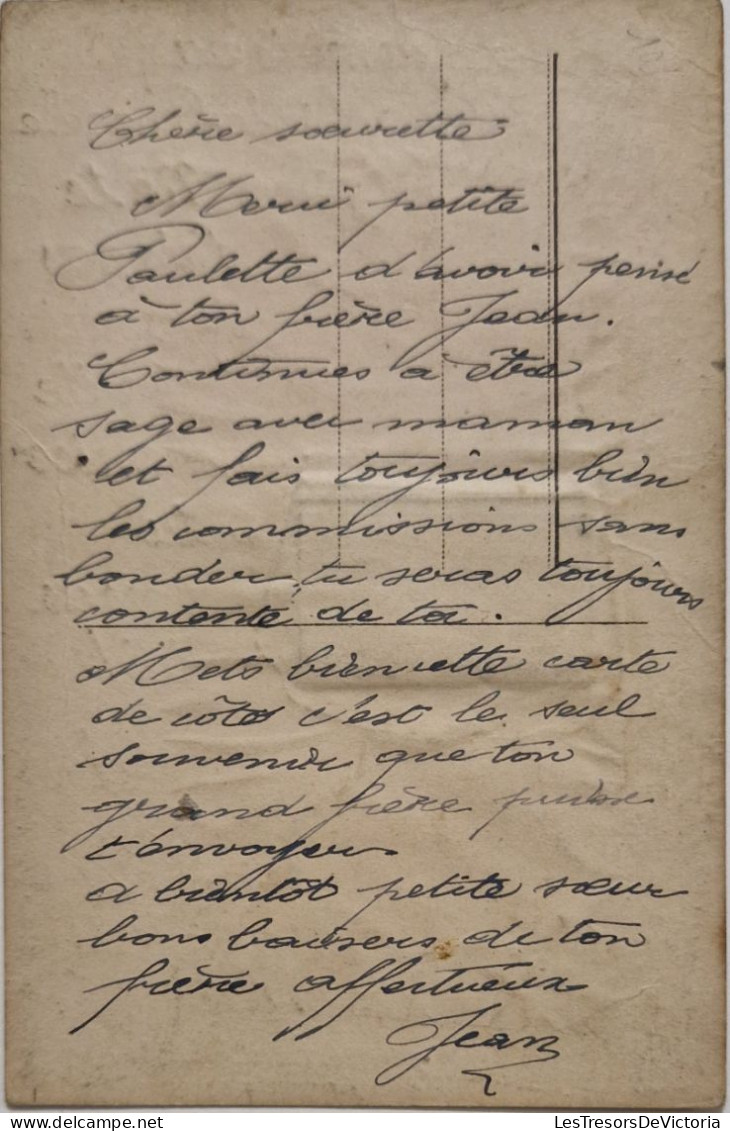 Chère sœurette
Merci petite
Paulette d'avoir pensé
à ton frère Jean.
Continues à être
sage avec maman
et fais toujours bien
les commissions sans
bouder, tu seras toujours
contente de toi.
Mets bien cette carte
de côté c'est le seul
souvenir que ton
grand frère puisse
t'envoyer
a bientôt petite sœur
bons baisers de ton
frère affectueux
Jean
LesTresorsDeVictoria